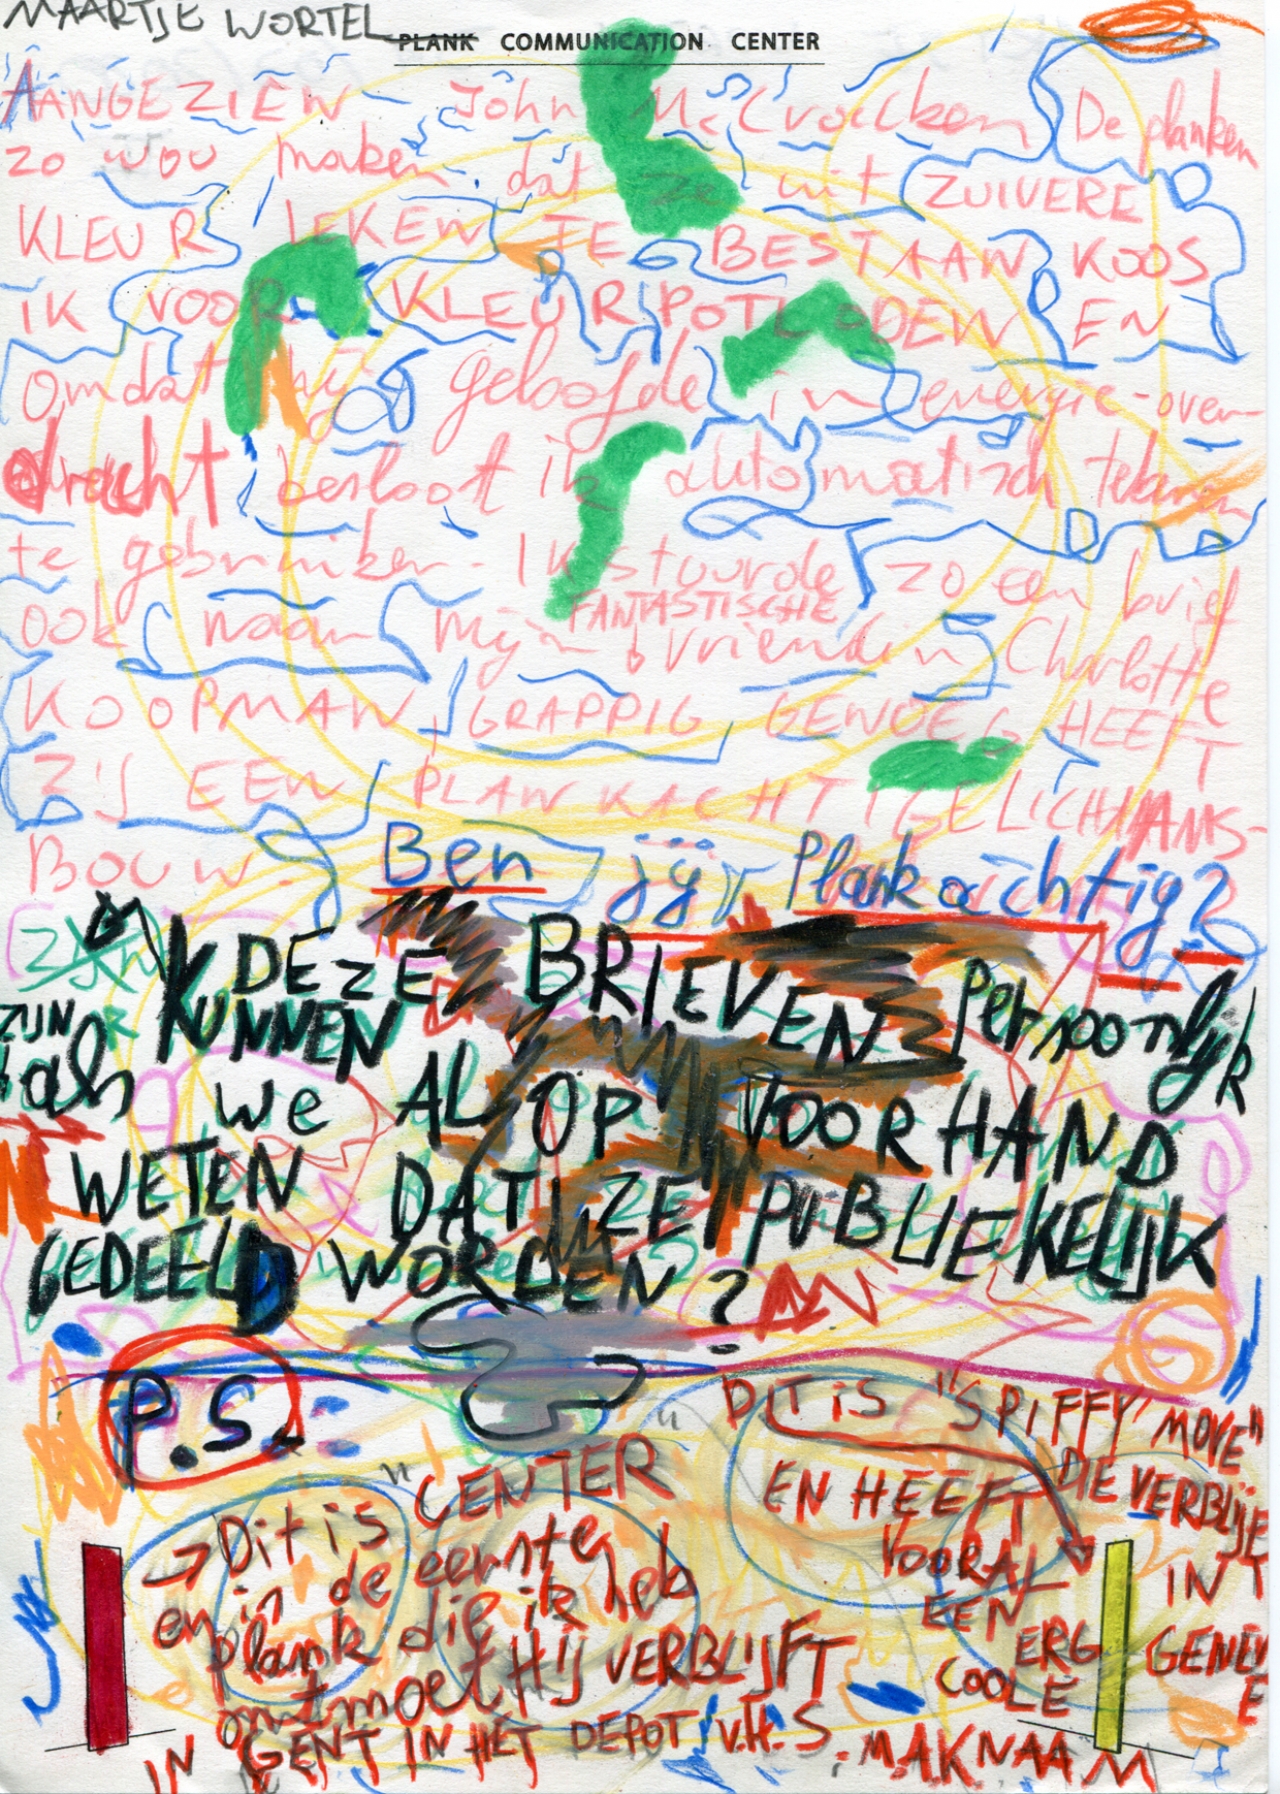 MAARTJE WORTEL
PLANK COMMUNICATION CENTER
AANGEZIEN John McCracken De planken
zo wou maken dat ze uit ZUIVERE
KLEUR LEKEN TE BESTAAN KOOS
IK VOOR KLEURPOTLODEN EN
omdat hij geloofde in energie-over-
dracht besloot ik automatisch tekenen
te gebruiken. Ik stuurde zo een brief
FANTASTISCHE
ook naar mijn vriendin Charlotte
KOOPMAN, GRAPPIG GENOEG HEEFT
ZIJ EEN PLANKACHTIGE LICHAAMS-
BOUW. Ben jij Plankachtig?
KUNNEN DEZE BRIEVEN Persoonlijk
ZIJN als we AL OP VOORHAND
WETEN DAT ZE PUBLIEKELIJK
GEDEELD WORDEN?
P.S.
→ Dit is "CENTER"
en in de eerste
plank die ik heb
ontmoet HIJ VERBLIJFT
IN GENT IN HET DEPOT v.H. S.M.A.K
DIT IS "SPIFFY MOVE"
DIE VERBLIJFT
IN
GENEVE
EN HEEFT
VOORAL
EEN
ERG
COOLE
NAAM